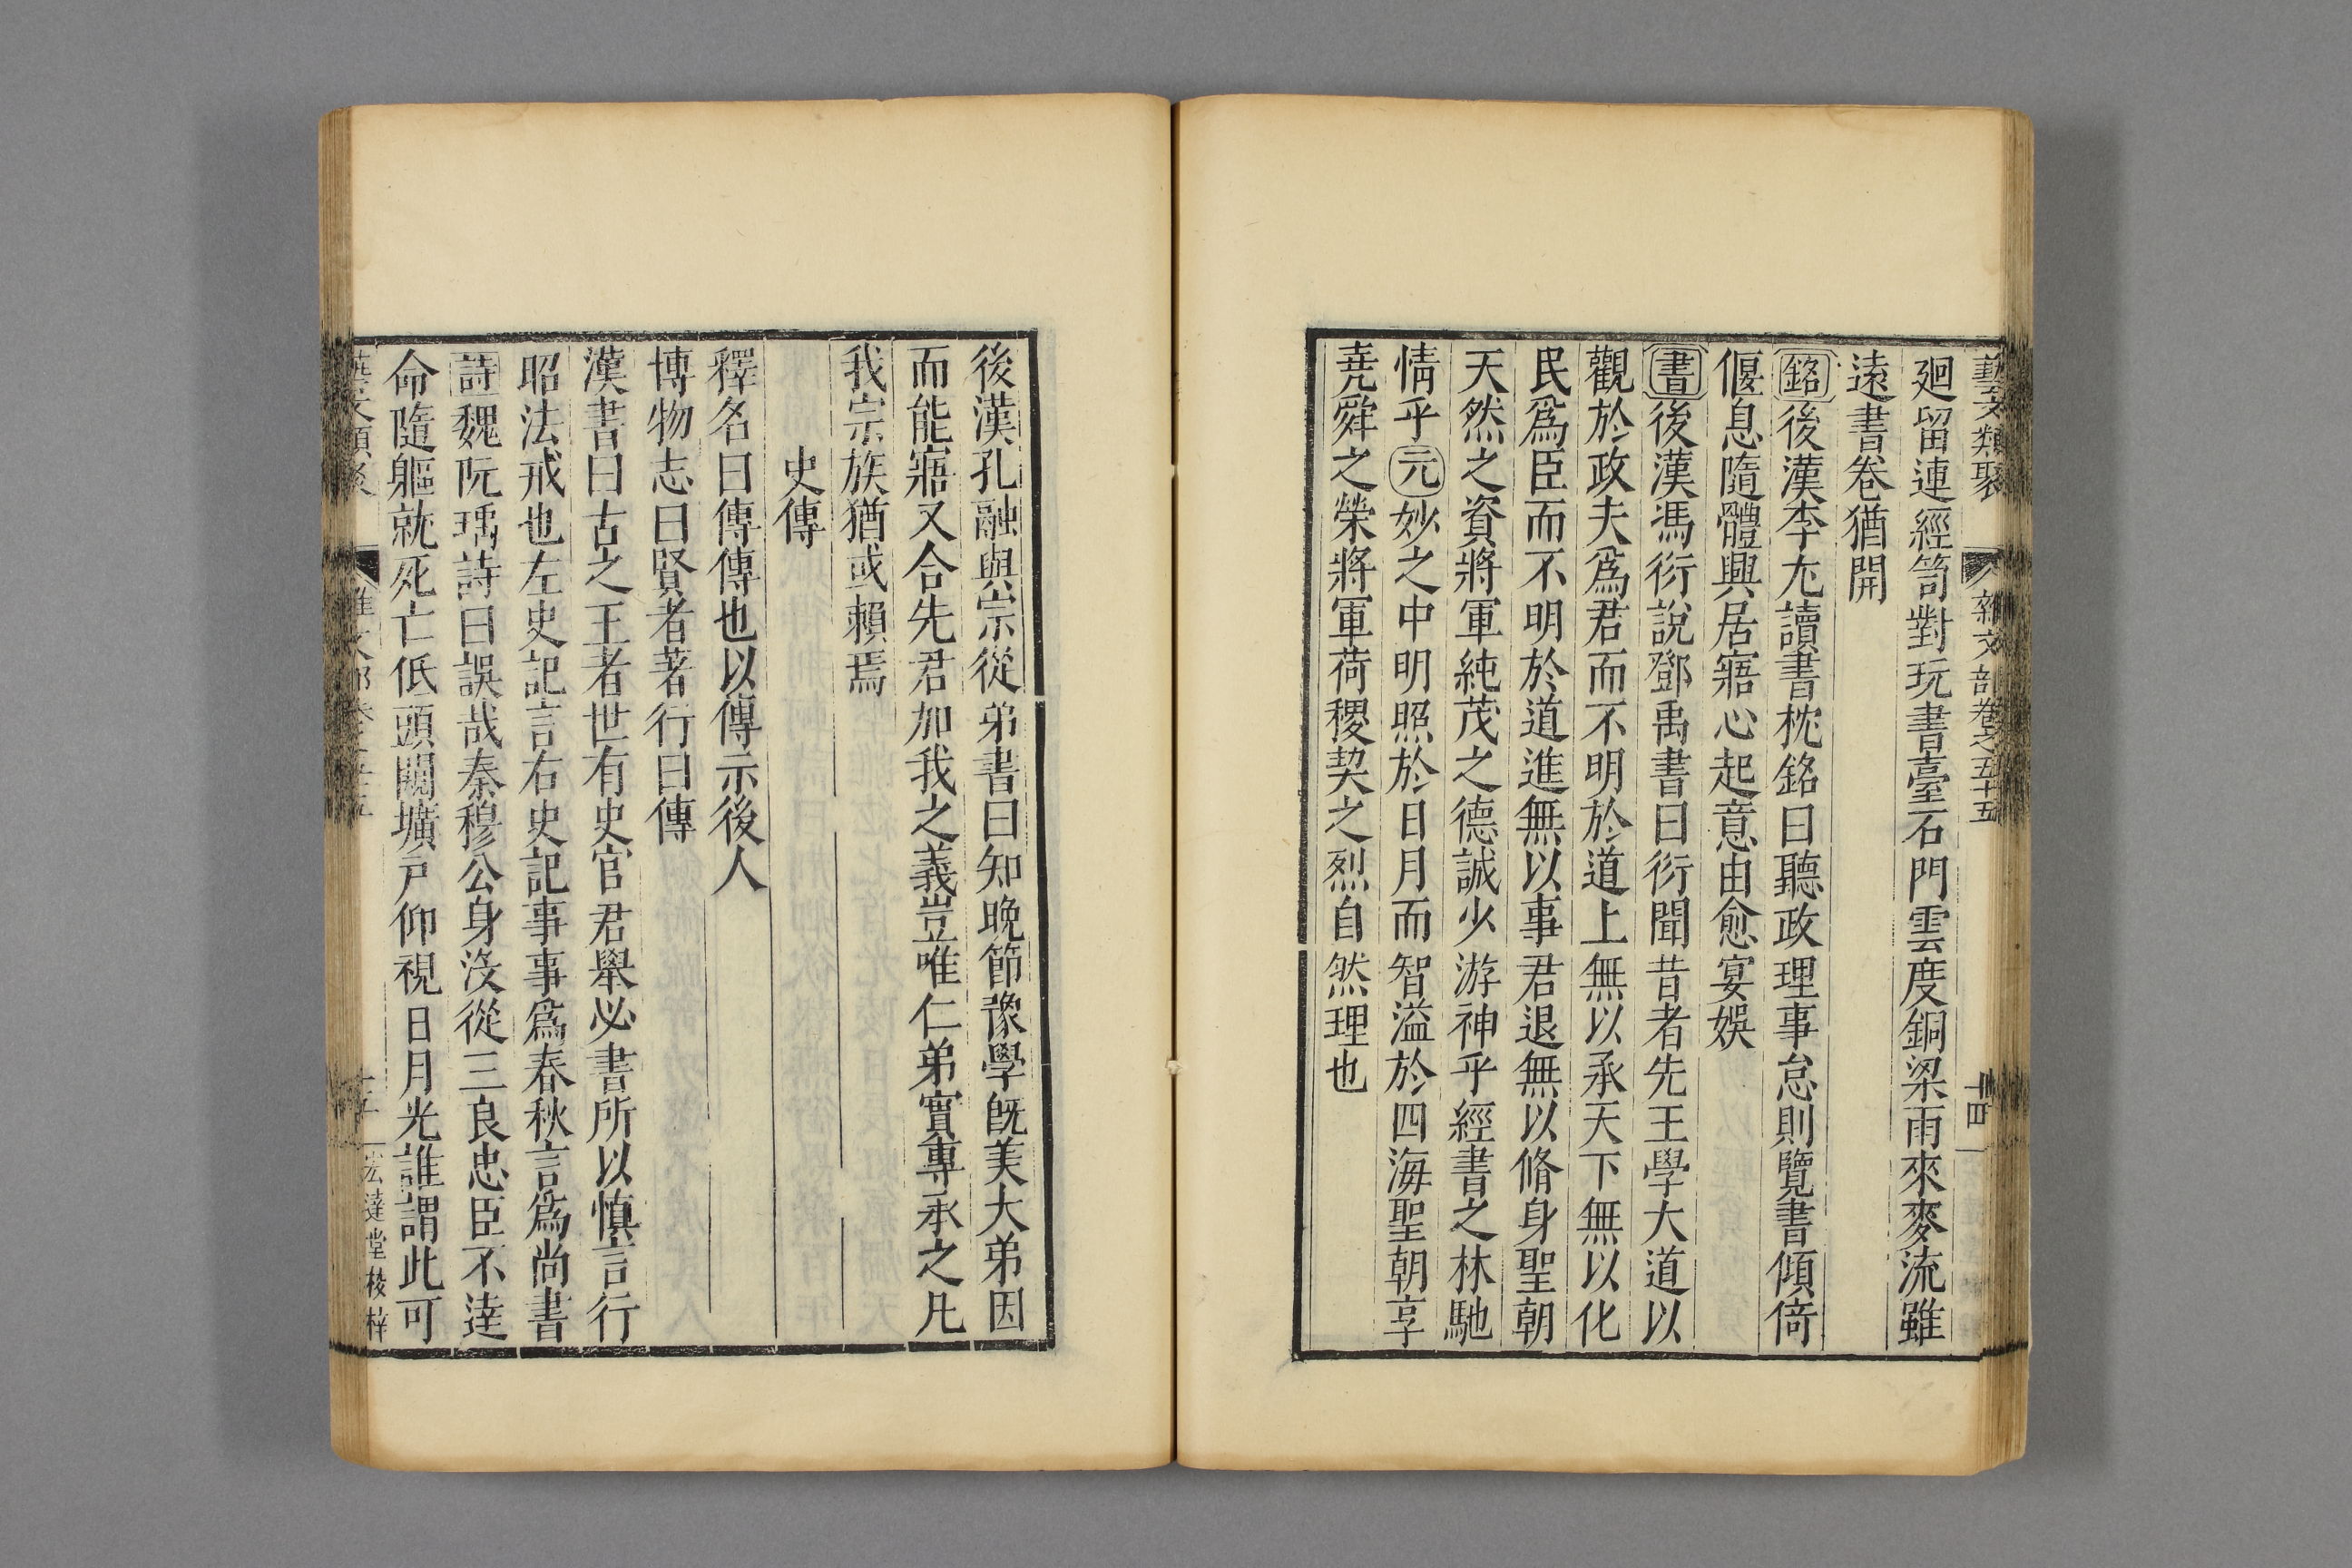 藝文類聚　雜文部卷之五十五　十四
廻留連經笥對玩書臺石門雲度銅梁雨來麥流雖
遠書卷猶開
銘後漢李尤讀書枕銘曰聽政理事怠則覽書傾倚
偃息隨體興居寤心起意由愈宴娛
書後漢馮衍說鄧禹書曰衍聞昔者先王學大道以
觀於政夫爲君而不明於道上無以承天下無以化
民爲臣而不明於道進無以事君退無以脩身聖朝
天然之資將軍純茂之德誠少游神乎經書之林馳
情乎元妙之中明照於日月而智溢於四海聖朝享
堯舜之榮將軍荷稷契之烈自然理也
後漢孔融與宗從弟書曰知晚節豫學旣美大弟因
而能寤又合先君加我之義豈唯仁弟實專承之凡
我宗族猶或賴焉
史傳
釋名曰傳傳也以傳示後人
博物志曰賢者著行曰傳
漢書曰古之王者世有史官君舉必書所以愼言行
昭法戒也左史記言右史記事事爲春秋言爲尚書
詩魏阮瑀詩曰誤哉秦穆公身沒從三良忠臣不達
命隨軀就死亡低頭闚壙戶仰視日月光誰謂此可
藝文類聚　雜文部卷之五十五　宏達堂校梓